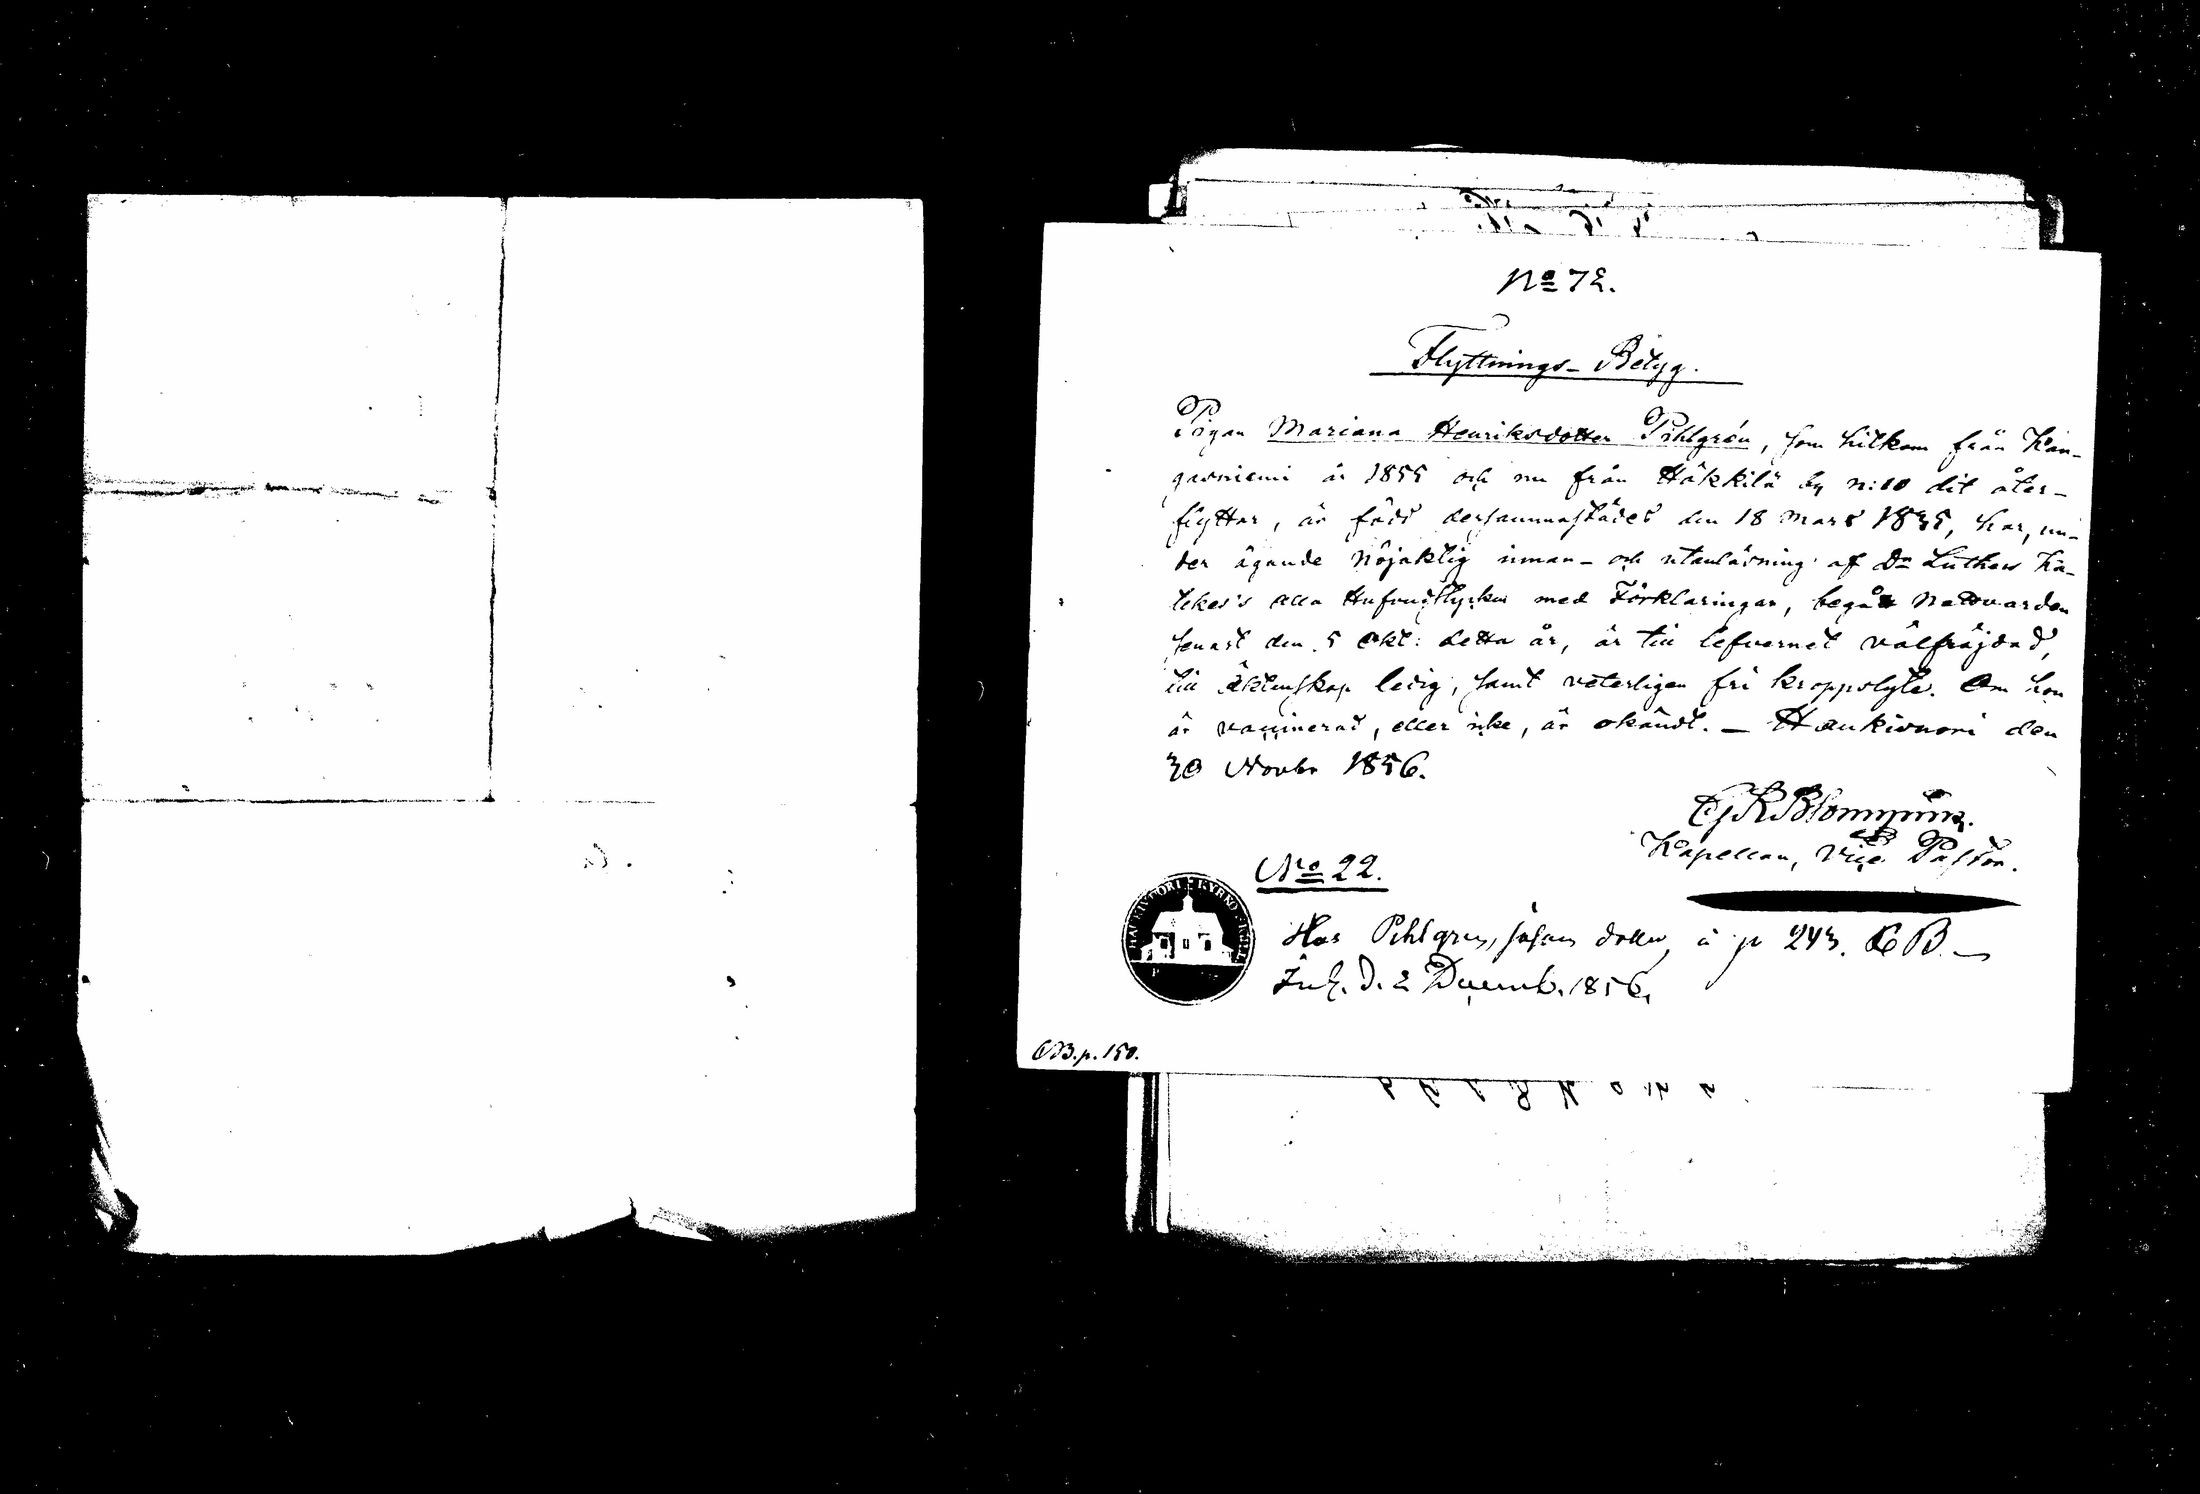 No 72.
Flyttnings-Betyg.
Pigan Mariana Henriksdotter Pihlgrén, som hitkom från Kan-
gasniemi år 1855 och nu från Häkkilä by n:10 dit åter-
flyttar, är född dersammastädes den 18 Mars 1835, har, un-
der ägande nöjaktig innan- och utanläsning af Dr Luthers Ka-
tekes's alla Hufvudstycken med Förklaringar, begått Nattvarden
senast den 5 Okt: detta år, är till lefvernet välfräjdad,
till Äktenskap ledig, samt veterligen fri kroppslyte. Om hon
är vaccinerad, eller icke, är okändt. — Haukivuori den
30 Novbr 1856.
Blomqvist.
Kapellan, Vice Pastor.
No 22.
Hos Pihlgren, dotter, å p 243. KB. —
d. 2 Decemb. 1856.
HAUKIVUORI KYRKO
p. 150.